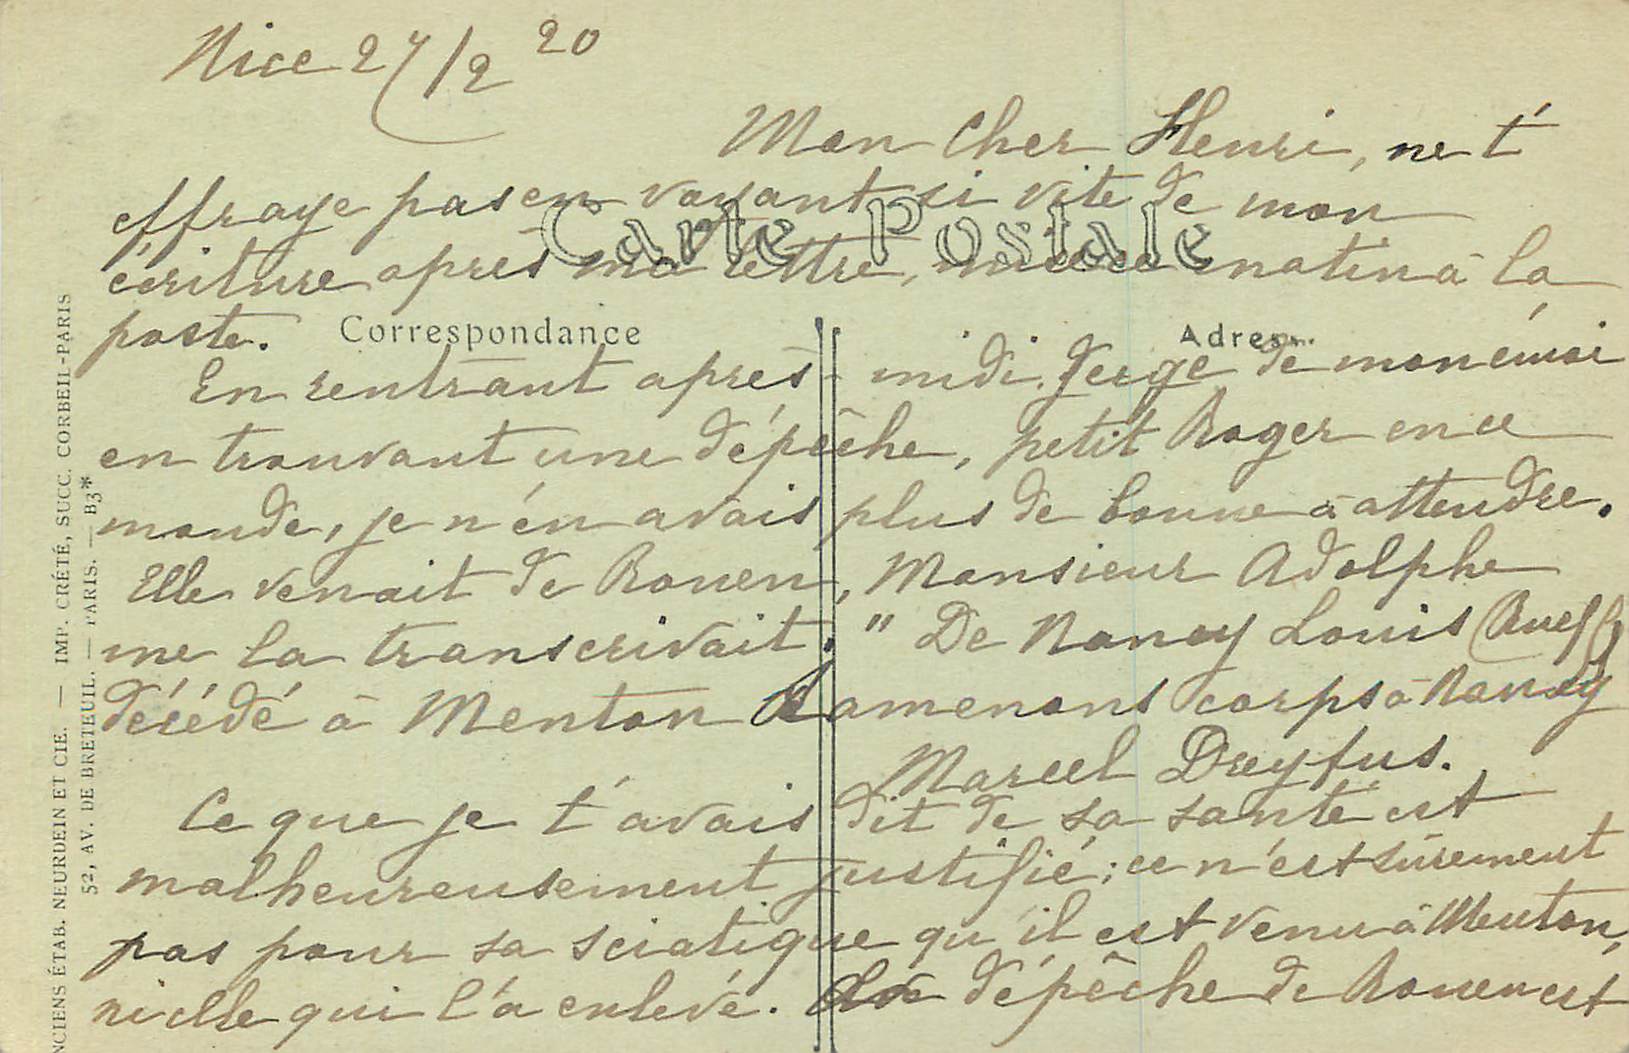 Nice 27/2 20
Mon Cher Henri, ne t'
effraye pas en voyant si vite de mon
Carte Postale
écriture après ma lettre, mise ce matin à la
poste.
Correspondance
Adresse
En rentrant après-midi. Juge de mon émoi
en trouvant une dépêche, petit Roger en ce
monde, je n'en avais plus de bonne à attendre.
Elle venait de Rouen, Monsieur Adolphe
me la transcrivait. " De Nancy Louis (Rueff)
décédé à Menton Ramenons corps à Nancy
Marcel Dreyfus.
Ce que je t'avais dit de sa santé est
malheureusement justifié; ce n'est sûrement
pas pour sa sciatique qu'il est venu à Menton,
ni elle qui l'a enlevé. dépêche de Rouen est
NCIENS ÉTAB. NEURDEIN ET CIE. — IMP. CRÉTÉ, SUCC. CORBEIL-PARIS
52, AV. DE BRETEUIL. — PARIS. — B3*